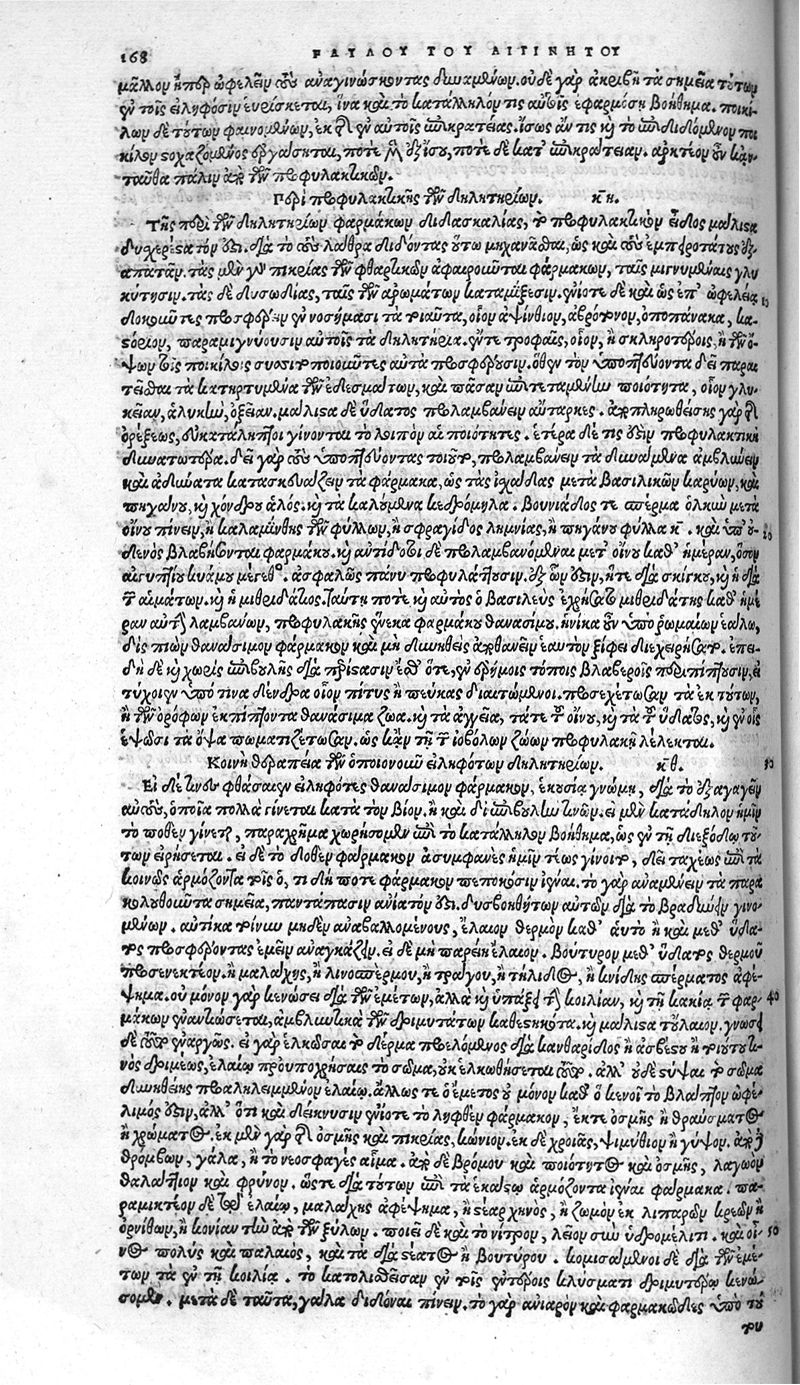 168 ΠΑΥΛΟΥ ΤΟΥ ΑΙΓΙΝΗΤΟΥ
μᾶλλον ἤπερ ὠφελεῖν τοὺς ἀναγινώσκοντας δυναμένων. οὐδὲ γὰρ ἀκριβῆ τὰ σημεῖα τούτων
ἐν τοῖς εἰληφόσιν εὑρίσκεται, ἵνα καὶ τὸ κατάλληλόν τις αὐτοῖς ἐφαρμόσῃ βοήθημα. ποικί-
λων δὲ τούτων φαινομένων, ἐκ τῆς ἐν αὐτοῖς ἐπικρατείας. ἴσως ἄν τις καὶ τὸ ἐπιδιδόμενον ποι
κίλον στοχαζόμενος ἐργάσηται, ποτὲ μὲν ἐξίσου, ποτὲ δὲ κατ' ἐπικράτειαν. ἀρκτέον οὖν κἀν-
ταῦθα πάλιν ἀπὸ τῶν προφυλακτικῶν.
Περὶ προφυλακτικῆς τῶν δηλητηρίων. κη.
Τῆς περὶ τῶν δηλητηρίων φαρμάκων διδασκαλίας, τὸ προφυλακτικὸν εἶδος μάλιστα
δυχερέστατόν ἐστι. διὰ τὸ τοὺς λάθρα διδόντας οὕτω μηχανᾶσθαι, ὡς καὶ τοὺς ἐμπειροτάτους ἐξ
απατᾶν. τὰς μὲν γὰρ πικρίας τῶν φθαρτικῶν ἀφαιροῦνται φαρμάκων, ταῖς μιγνυμέναις γλυ
κύτησιν. τὰς δὲ δυσωδίας, ταῖς τῶν ἀρωμάτων καταμίξεσιν. ἐνίοτε δὲ καὶ ὡς ἐπ' ὠφελείᾳ 10
δοκοῦντες προσφέρειν ἐν νοσήμασι τὰ τοιαῦτα, οἷον ἀψίνθιον, ἀβρότονον, ὀποπάνακα, κα-
στόριον, παραμιγνύουσιν αὐτοῖς τὰ δηλητήρια. ἔν τε τροφαῖς, οἷον, ἢ σκληροτέροις, ἢ τῶν ὄ-
ψων τοῖς ποικίλοις συστροποιοῦντες αὐτὰ προσφέρουσιν. ὅθεν τὸν ὑποπτεύοντα δεῖ παραι
τεῖσθαι τὰ κατηρτυμένα τῶν ἐδεσμάτων, καὶ πᾶσαν ἐπιτεταμένην ποιότητα, οἷον γλυ-
κεῖαν, ἁλυκὴν, ὀξεῖαν. μάλιστα δὲ ὕδατος προλαμβάνειν αὔταρκες. ἀποπληρωθείσης γὰρ τῆς
ὀρέξεως, εὐκατάληπτοι γίνονται τὸ λοιπὸν αἱ ποιότητες. ἑτέρα δέ τις ἐστιν προφυλακτικὴ
δυνατωτέρα. δεῖ γὰρ τοὺς ὑποπτεύοντας τοιοῦτο, προλαμβάνειν τὰ δυνάμενα ἀμβλύνειν
καὶ ἀδύνατα κατασκευάζειν τὰ φάρμακα, ὡς τὰς ἰσχάδας μετὰ βασιλικῶν καρύων, καὶ
πηγάνου, καὶ χόνδρου ἁλός. καὶ τὰ καλούμενα κεδρόμηλα. βουνιάδος τε σπέρμα ὁλκὴν μετὰ
οἴνου πίνειν, ἢ καλαμίνθης τῶν φύλλων, ἢ σφραγῖδος λημνίας, ἢ πηγάνου φύλλα κ. καὶ ὑπ' οὐ- 20
δενὸς βλαβήσονται φαρμάκου. καὶ ἀντίδοτοι δὲ προλαμβανόμεναι μετ' οἴνου καθ' ἡμέραν, ὅσον
αἰγυπτίου κυάμου μέγεθος. ἀσφαλῶς πάνυ προφυλάττουσιν. ἐξ ὧν ἐστιν, ἥτε διὰ σκίγκου, καὶ ἡ διὰ
τῶν αἱμάτων. καὶ ἡ μιθριδάτιος. ταύτῃ ποτε καὶ αὐτὸς ὁ βασιλεὺς ἐχρήσατο μιθριδάτης καθ' ἡμέ
ραν αὐτῆς λαμβάνων, προφυλακῆς ἕνεκα φαρμάκου θανασίμου. ἡνίκα οὖν ὑπὸ ῥωμαίων ἑάλω,
δὶς πιὼν θανάσιμον φάρμακον καὶ μὴ δυνηθεὶς ἀποθανεῖν ἑαυτὸν ξίφει διεχειρήσατο. ἐπει-
δὴ δὲ καὶ χωρὶς ἐπιβουλῆς διὰ πρόφασιν ἔσθ' ὅτε, ἐν ἐρήμοις τόποις βλαβεροῖς περιπίπτουσιν, εἰ
τύχοιεν ὑπό τινα δένδρα οἷον πίτυς ἢ πεύκας διαιτώμενοι. προσεχέτωσαν τὰ ἐκ τούτων,
ἢ τῶν ὀρόφων ἐκπίπτοντα θανάσιμα ζῶα. καὶ τὰ ἀγγεῖα, τά τε τοῦ οἴνου, καὶ τὰ τοῦ ὕδατος, καὶ ἐν οἷς
ἕψουσι τὰ ὄψα πωματιζέτωσαν. ὡς κἀν τῇ τῶν ἰοβόλων ζώων προφυλακῇ λέλεκται.
Κοινὴ θεραπεία τῶν ὁποιονοῦν εἰληφότων δηλητηρίων. κθ. 30
Εἰ δέ τινες φθάσαιεν εἰληφότες θανάσιμον φάρμακον, ἑκουσίᾳ γνώμῃ, διὰ τὸ ἐξαγαγεῖν
αὑτοὺς, ὁποῖα πολλὰ γίνεται κατὰ τὸν βίον, ἢ καὶ δι' ἐπιβουλήν τινων. εἰ μὲν κατάδηλον ἡμῖν
τὸ ποθὲν γίνεται, παραχρῆμα χωρήσομεν ἐπὶ τὸ κατάλληλον βοήθημα, ὡς ἐν τῇ διεξόδῳ τού-
των εἰρήσεται. εἰ δὲ τὸ δοθὲν φάρμακον ἀσυμφανὲς ἡμῖν τέως γίνοιτο, δεῖ ταχέως ἐπὶ τὰ
κοινῶς ἁρμόζοντα τοῖς ὅ, τι δή ποτε φάρμακον πεπωκόσιν ἰέναι. τὸ γὰρ ἀναμένειν τὰ παρα
κολουθοῦντα σημεῖα, παντάπασιν ἀνίατόν ἐστι. δυσβοηθήτων αὐτῶν διὰ τὸ βραδύνειν γινο-
μένων. αὐτίκα τοίνυν μηδὲν ἀναβαλλομένους, ἔλαιον θερμὸν καθ' αὑτὸ ἢ καὶ μεθ' ὕδα-
τος προσφέροντας ἐμεῖν ἀναγκάζειν. εἰ δὲ μὴ παρείη ἔλαιον. βούτυρον μεθ' ὕδατος θερμοῦ
προσενεκτέον. ἢ μαλάχης, ἢ λινοσπέρμου, ἢ τράγου, ἢ τήλιδος, ἢ κνίδης σπέρματος ἀφέ-
ψημα. οὐ μόνον γὰρ κενώσει διὰ τῶν ἐμέτων, ἀλλὰ καὶ ὑπάξει τὴν κοιλίαν, καὶ τῇ κακίᾳ τῶν φαρ- 40
μάκων ἐναντιώσεται, ἀμβλυντικὰ τῶν δριμυτάτων καθεστηκότα. καὶ μάλιστα τοὔλαιον. γνώσῃ
δὲ τοῦτο ἐναργῶς. εἰ γὰρ ἑλκῶσαι τὸ δέρμα προελόμενος διὰ κανθαρίδος ἢ ἀσβέστου ἢ τοιούτου τι-
νὸς δριμέως, ἐλαίῳ προϋποχρήσαις τὸ σῶμα, οὐκ ἑλκωθήσεται τοῦτο. ἀλλ' οὐδὲ ὗψαι τὸ σῶμα
δυνηθείης προαληλειμμένον ἐλαίῳ. ἄλλως τε ὁ ἔμετος οὐ μόνον καθ' ὃ κενοῖ τὸ βλάπτον ὠφέ-
λιμός ἐστιν, ἀλλ' ὅτι καὶ δείκνυσιν ἐνίοτε τὸ ληφθὲν φάρμακον, ἔκ τε ὀσμῆς ἢ θραύσματος
ἢ χρώματος. ἐκ μὲν γὰρ τῆς ὀσμῆς καὶ πικρίας, κώνιον. ἐκ δὲ χροιᾶς, ψιμύθιον ἢ γύψον. ἀπὸ δὲ
θρόμβων, γάλα, ἢ τὸ νεοσφαγὲς αἷμα. ἀπὸ δὲ βρόμου καὶ ποιότητος καὶ ὀσμῆς, λαγωὸν
θαλάττιον καὶ φρύνον. ὥστε διὰ τούτων ἐπὶ τὰ ἑκάστῳ ἁρμόζοντα ἰέναι φάρμακα. πα-
ραμικτέον δὲ τῷ ἐλαίῳ, μαλάχης ἀφέψημα, ἢ στέαρ χηνὸς, ἢ ζωμὸν ἐκ λιπαρῶν κρεῶν ἢ
ὀρνίθων, ἢ κονίαν τὴν ἀπὸ τῶν ξύλων. ποιεῖ δὲ καὶ τὸ νίτρον, λεῖον σὺν ὑδρομέλιτι. καὶ οἶ- 50
νος πολὺς καὶ παλαιὸς, καὶ τὰ διὰ στέατος ἢ βουτύρου. κομισάμενοι δὲ διὰ τῶν ἐμέ-
των τὰ ἐν τῇ κοιλίᾳ. τὸ κατολισθῆσαν ἐν τοῖς ἐντέροις κλύσματι δριμυτέρῳ κενώ-
σομεν. μετὰ δὲ ταῦτα, γάλα διδόναι πίνειν. τὸ γὰρ ἀνιαρὸν καὶ φαρμακῶδες ὑπὸ τού
του